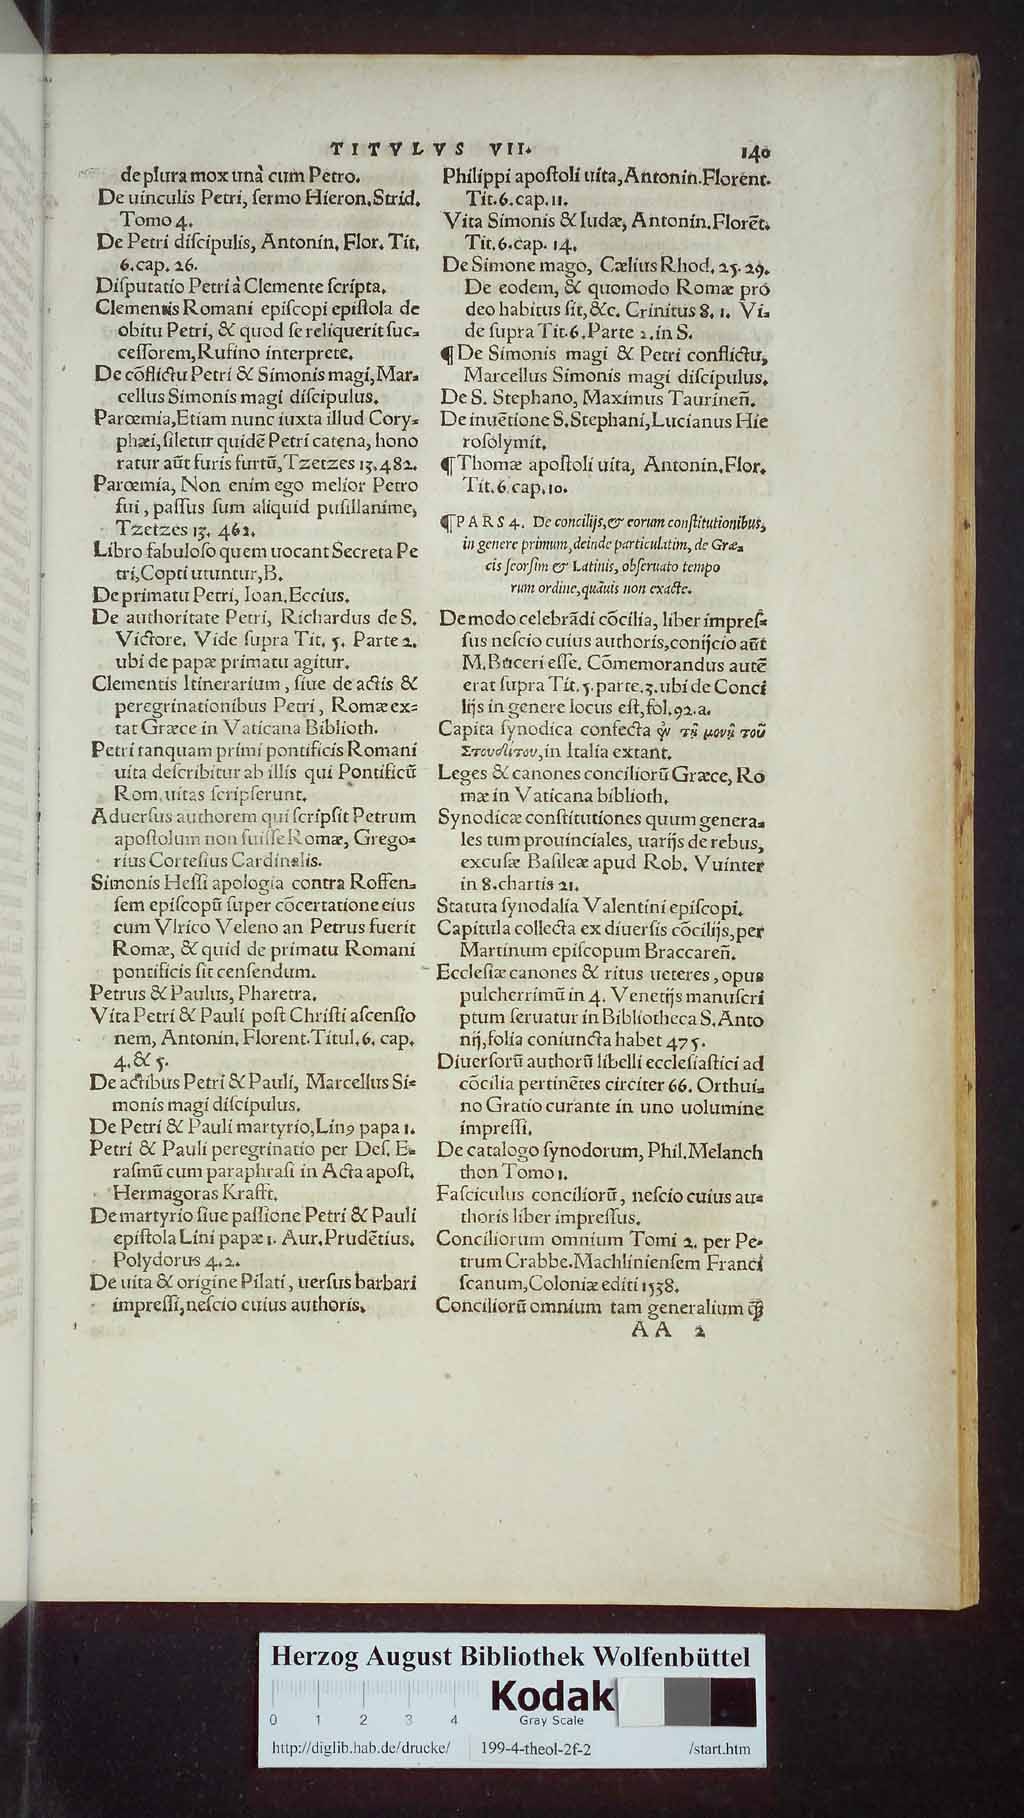 TITVLVS VII.
140
de plura mox unà cum Petro.
De uinculis Petri, ſermo Hieron. Strid.
Tomo 4.
De Petri diſcipulis, Antonin. Flor. Tit.
6. cap. 26.
Diſputatio Petri à Clemente ſcripta.
Clementis Romani epiſcopi epiſtola de
obitu Petri, & quod ſe reliquerit ſuc-
ceſſorem, Rufino interprete.
De cōflictu Petri & Simonis magi, Mar-
cellus Simonis magi diſcipulus.
Parœmia, Etiam nunc iuxta illud Cory-
phæi, ſiletur quidē Petri catena, hono
ratur aūt furis furtū, Tzetzes 13. 482.
Parœmia, Non enim ego melior Petro
fui, paſſus ſum aliquid puſillanime,
Tzetzes 13. 462.
Libro fabuloſo quem uocant Secreta Pe
tri, Copti utuntur, B.
De primatu Petri, Ioan. Eccius.
De authoritate Petri, Richardus de S.
Victore. Vide ſupra Tit. 5. Parte 2.
ubi de papæ primatu agitur.
Clementis Itinerarium, ſiue de actis &
peregrinationibus Petri, Romæ ex-
tat Græce in Vaticana Biblioth.
Petri tanquam primi pontificis Romani
uita deſcribitur ab illis qui Pontificū
Rom. uitas ſcripſerunt.
Aduerſus authorem qui ſcripſit Petrum
apoſtolum non fuiſſe Romæ, Grego-
rius Corteſius Cardinalis.
Simonis Heſſi apologia contra Roffen-
ſem epiſcopū ſuper cōcertatione eius
cum Vlrico Veleno an Petrus fuerit
Romæ, & quid de primatu Romani
pontificis ſit cenſendum.
Petrus & Paulus, Pharetra.
Vita Petri & Pauli poſt Chriſti aſcenſio
nem, Antonin. Florent. Titul. 6. cap.
4. & 5.
De actibus Petri & Pauli, Marcellus Si-
monis magi diſcipulus.
De Petri & Pauli martyrio, Linꝰ papa 1.
Petri & Pauli peregrinatio per Deſ. E-
raſmū cum paraphraſi in Acta apoſt.
Hermagoras Krafft.
De martyrio ſiue paſſione Petri & Pauli
epiſtola Lini papæ 1. Aur. Prudētius.
Polydorus 4. 2.
De uita & origine Pilati, uerſus barbari
impreſſi, neſcio cuius authoris.
Philippi apoſtoli uita, Antonin. Florent.
Tit. 6. cap. 11.
Vita Simonis & Iudæ, Antonin. Florēt.
Tit. 6. cap. 14.
De Simone mago, Cælius Rhod. 25. 29.
De eodem, & quomodo Romæ pro
deo habitus ſit, &c. Crinitus 8. 1. Vi-
de ſupra Tit. 6. Parte 2. in S.
¶ De Simonis magi & Petri conflictu,
Marcellus Simonis magi diſcipulus.
De S. Stephano, Maximus Taurineñ.
De inuētione S. Stephani, Lucianus Hie
roſolymit.
¶ Thomæ apoſtoli uita, Antonin. Flor.
Tit. 6 cap. 10.
¶ PARS 4. De concilijs, & eorum conſtitutionibus,
in genere primum, deinde particulatim, de Græ-
cis ſeorſim & Latinis, obſeruato tempo
rum ordine, quāuis non exacte.
De modo celebrādi cōcilia, liber impreſ-
ſus neſcio cuius authoris, conijcio aūt
M. Buceri eſſe. Cōmemorandus autē
erat ſupra Tit. 5. parte. 3. ubi de Conci
lijs in genere locus eſt, fol. 92. a.
Capita ſynodica confecta ἐν τῇ μονῇ τοῦ
Στουδίτου, in Italia extant.
Leges & canones conciliorū Græce, Ro
mæ in Vaticana biblioth.
Synodicæ conſtitutiones quum genera-
les tum prouinciales, uarijs de rebus,
excuſæ Baſileæ apud Rob. Vuinter
in 8. chartis 21.
Statuta ſynodalia Valentini epiſcopi.
Capitula collecta ex diuerſis cōcilijs, per
Martinum epiſcopum Braccareñ.
Eccleſiæ canones & ritus ueteres, opus
pulcherrimū in 4. Venetijs manuſcri
ptum ſeruatur in Bibliotheca S. Anto
nij, folia coniuncta habet 475.
Diuerſorū authorū libelli eccleſiaſtici ad
cōcilia pertinētes circiter 66. Orthui-
no Gratio curante in uno uolumine
impreſſi.
De catalogo ſynodorum, Phil. Melanch
thon Tomo 1.
Faſciculus conciliorū, neſcio cuius au-
thoris liber impreſſus.
Conciliorum omnium Tomi 2. per Pe-
trum Crabbe. Machlinienſem Franci
ſcanum, Coloniæ editi 1538.
Conciliorū omnium tam generalium q̃
AA 2
Herzog August Bibliothek Wolfenbüttel
Kodak
Gray Scale
0 1 2 3 4
http://diglib.hab.de/drucke/ 199-4-theol-2f-2 /start.htm